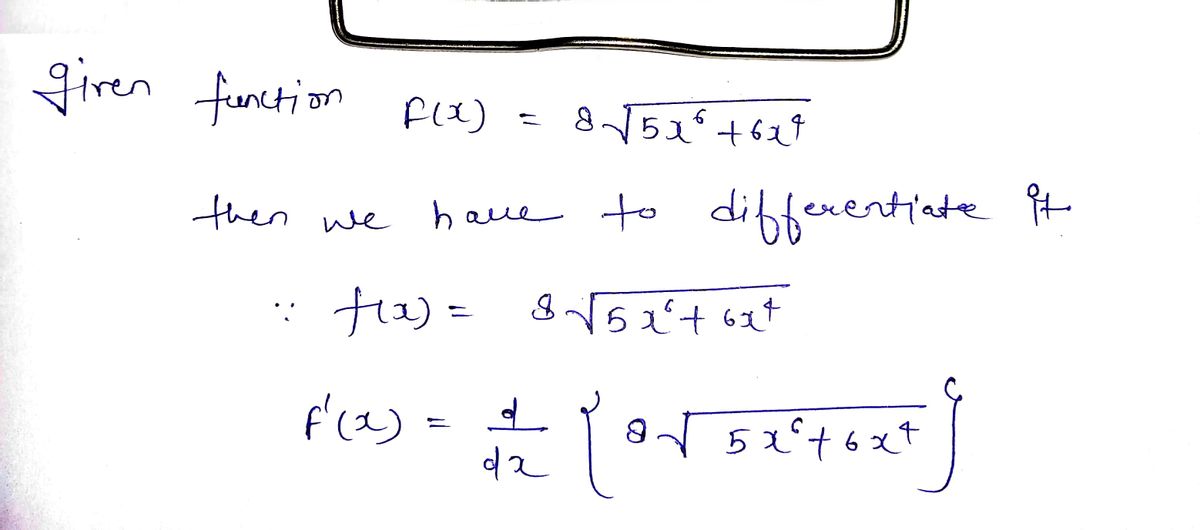 given function f(x) = 8√(5x⁶ + 6x⁴)
then we have to differentiate it
∵ f(x) = 8√(5x⁶ + 6x⁴)
f'(x) = d/dx { 8√(5x⁶ + 6x⁴) }